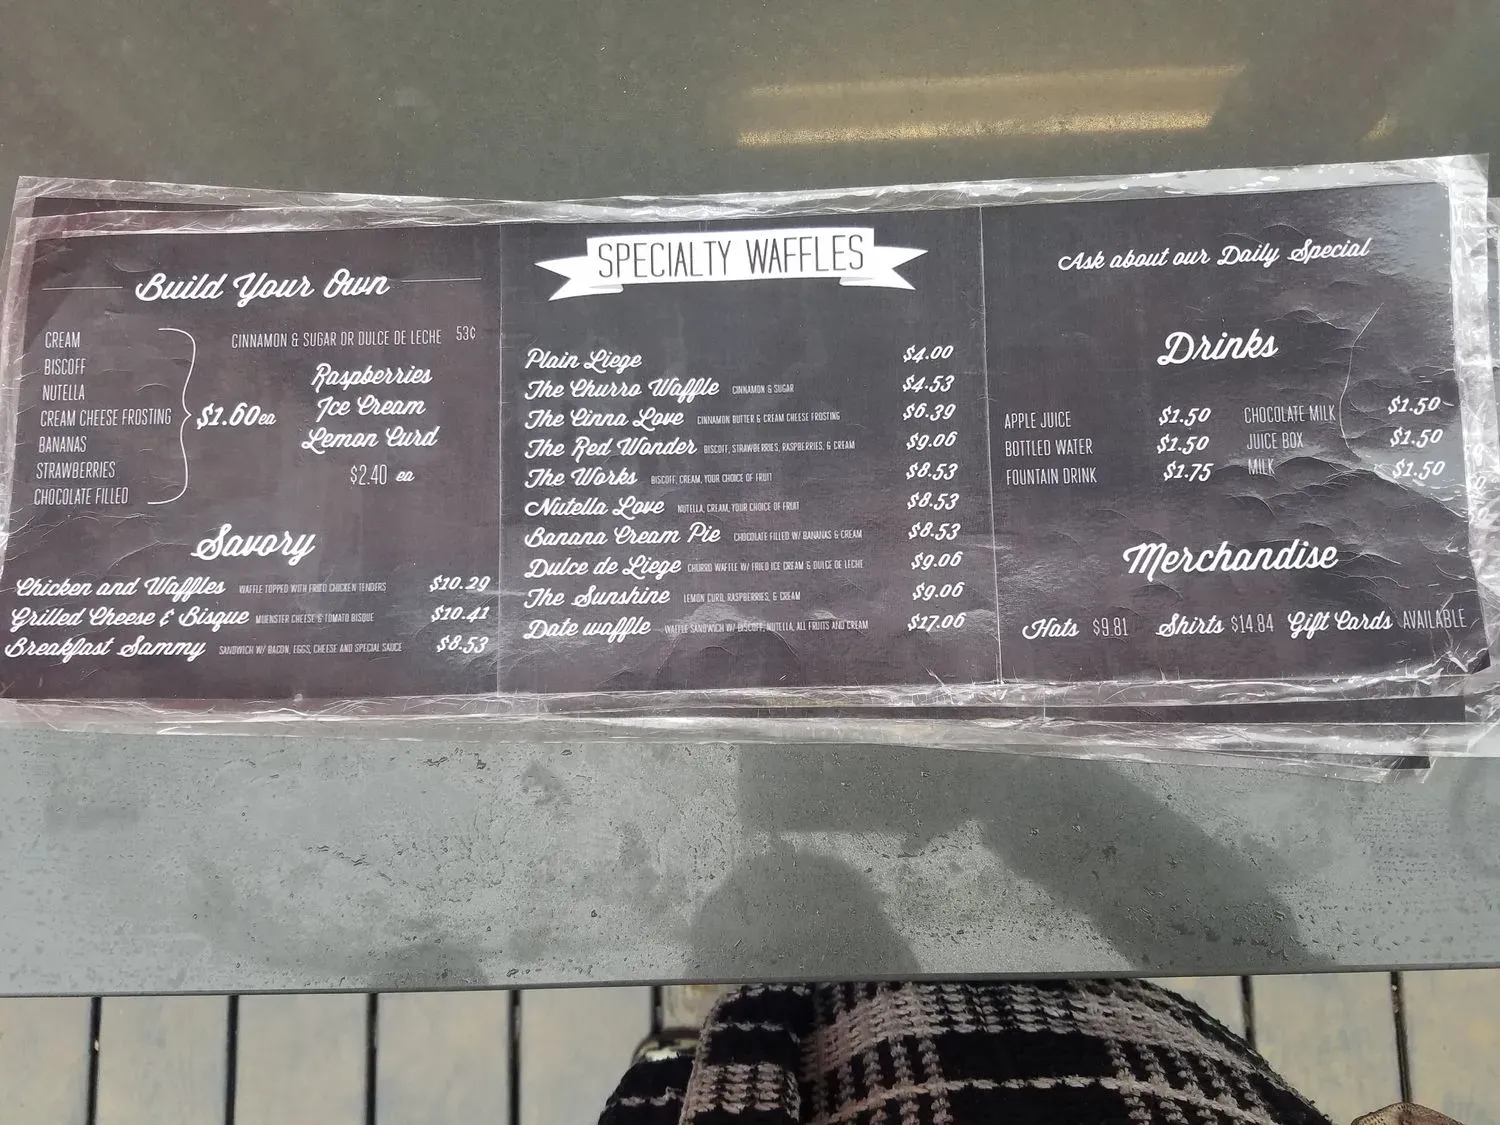 Build Your Own
CREAM
BISCOFF
NUTELLA
CREAM CHEESE FROSTING
BANANAS
STRAWBERRIES
CHOCOLATE FILLED
$1.60 ea
CINNAMON & SUGAR OR DULCE DE LECHE 53¢
Raspberries
Ice Cream
Lemon Curd
$2.40 ea
Savory
Chicken and Waffles WAFFLE TOPPED WITH FRIED CHICKEN TENDERS $10.29
Grilled Cheese & Bisque MUENSTER CHEESE & TOMATO BISQUE $10.41
Breakfast Sammy SANDWICH W/ BACON, EGGS, CHEESE AND SPECIAL SAUCE $8.53
SPECIALTY WAFFLES
Plain Liege $4.00
The Churro Waffle CINNAMON & SUGAR $4.53
The Cinna Love CINNAMON BUTTER & CREAM CHEESE FROSTING $6.39
The Red Wonder BISCOFF, STRAWBERRIES, RASPBERRIES, & CREAM $9.06
The Works BISCOFF, CREAM, YOUR CHOICE OF FRUIT $8.53
Nutella Love NUTELLA, CREAM, YOUR CHOICE OF FRUIT $8.53
Banana Cream Pie CHOCOLATE FILLED W/ BANANAS & CREAM $8.53
Dulce de Liege CHURRO WAFFLE W/ FRIED ICE CREAM & DULCE DE LECHE $9.06
The Sunshine LEMON CURD, RASPBERRIES, & CREAM $9.06
Date waffle WAFFLE SANDWICH W/ BISCOFF, NUTELLA, ALL FRUITS AND CREAM $17.06
Ask about our Daily Special
Drinks
APPLE JUICE $1.50 CHOCOLATE MILK $1.50
BOTTLED WATER $1.50 JUICE BOX $1.50
FOUNTAIN DRINK $1.75 MILK $1.50
Merchandise
Hats $9.81 Shirts $14.84 Gift Cards AVAILABLE